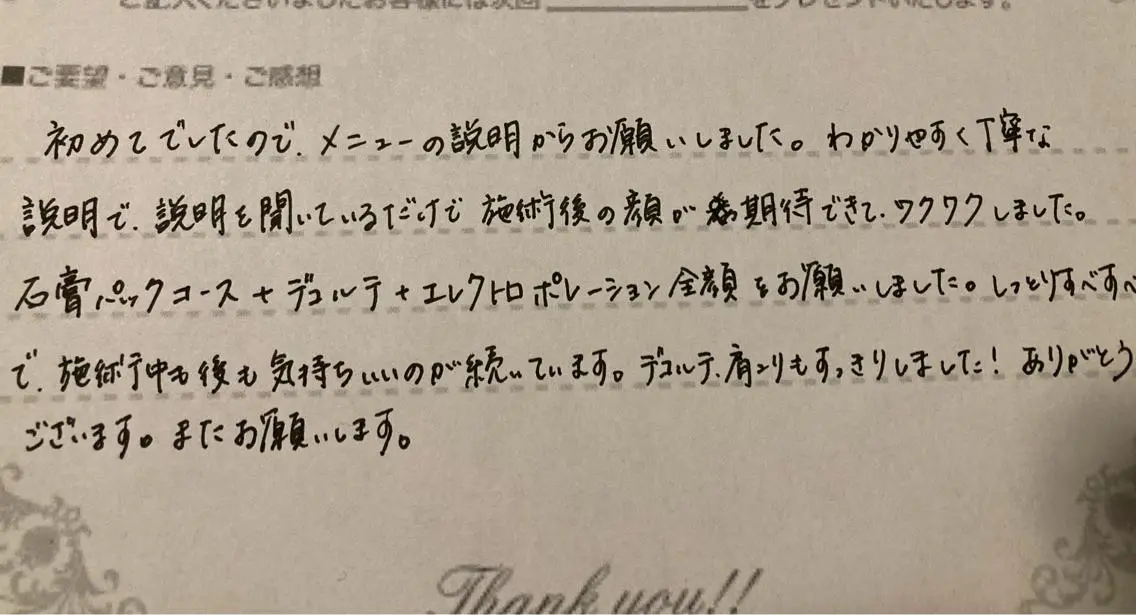 ご記入くださいましたお客様には次回__________をプレゼントいたします。
■ご要望・ご意見・ご感想
初めてでしたので、メニューの説明からお願いしました。わかりやすく丁寧な
説明で、説明を聞いているだけで施術後の顔が期待できて、ワクワクしました。
石膏パックコース+デコルテ+エレクトロポレーション全顔をお願いしました。しっとりすべすべ
で、施術中も後も気持ちいいのが続いています。デコルテ、肩こりもすっきりしました!ありがとう
ございます。またお願いします。
Thank you!!